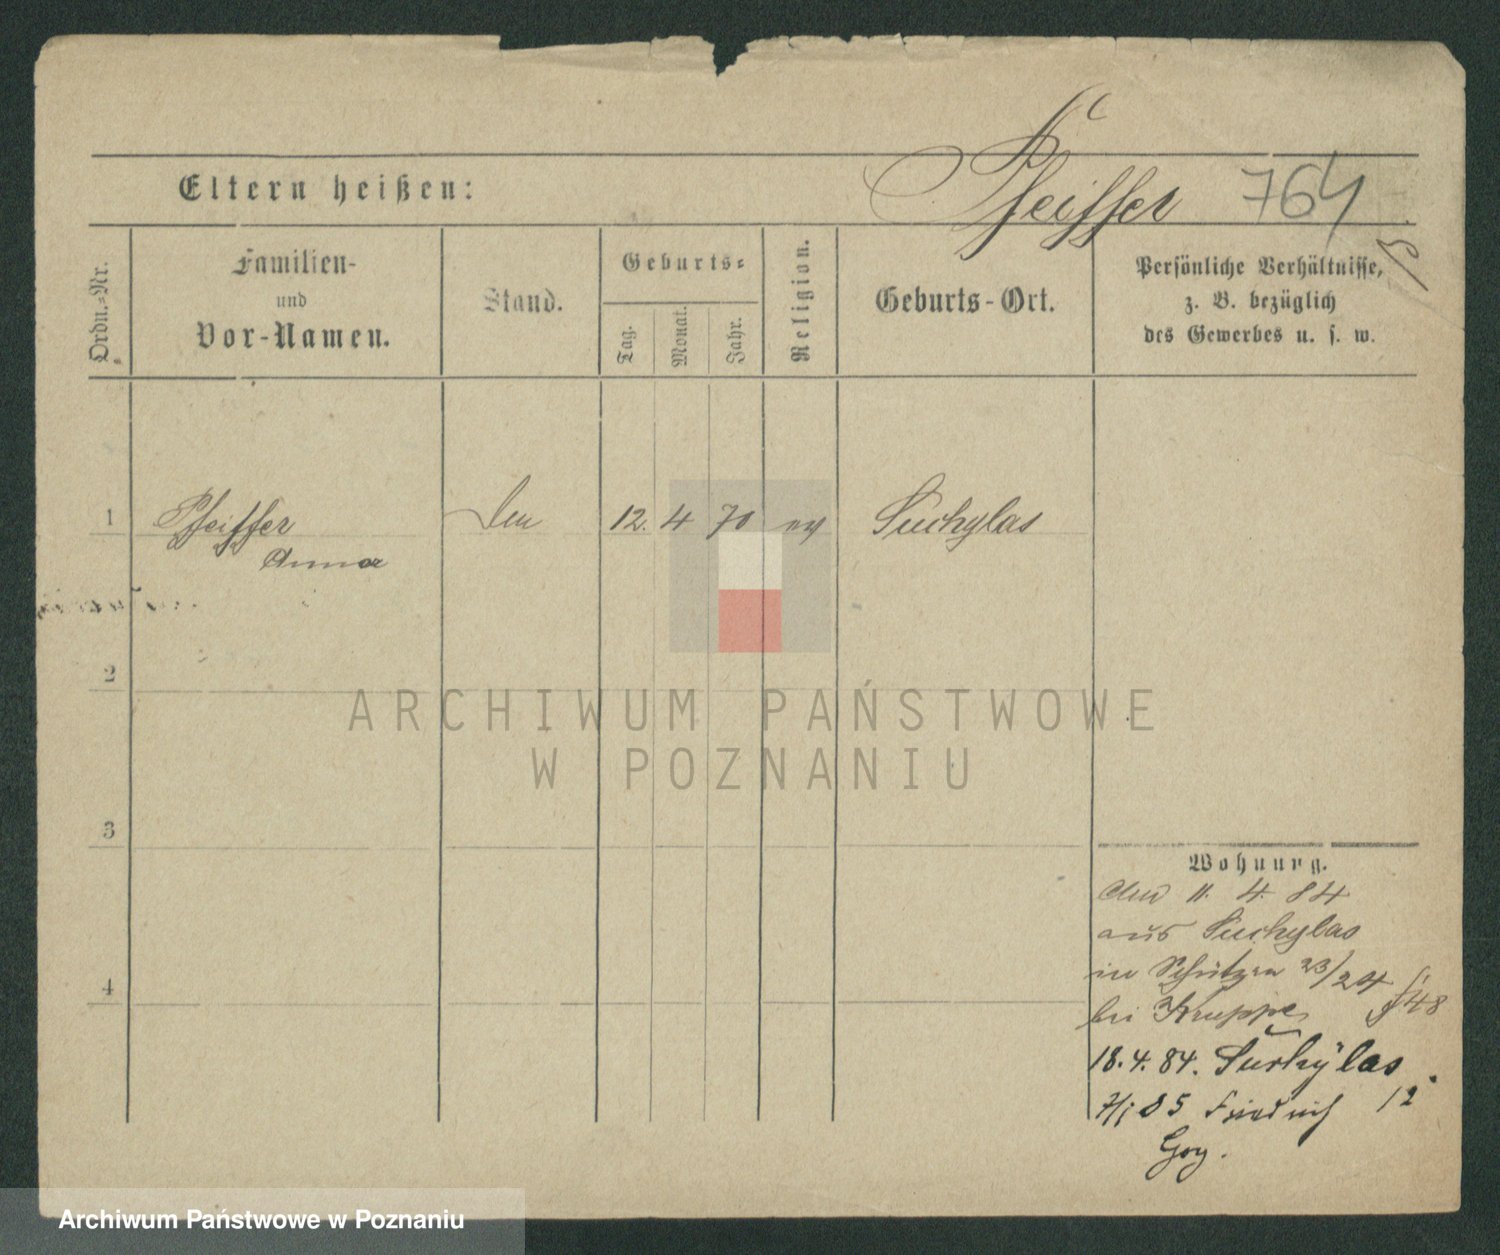 Pfeiffer 764
Eltern heißen:
Ordn.-Nr.
Familien-
und
Vor-Namen.
Stand.
Geburts-
Tag.
Monat.
Jahr.
Religion.
Geburts-Ort.
Persönliche Verhältnisse,
z. B. bezüglich
des Gewerbes u. s. w.
1 Pfeiffer 12. 4 70 ev Suchylas
Anna
2
3
4
ARCHIWUM PAŃSTWOWE
W POZNANIU
Wohnung.
den 11. 4. 84
aus Suchylas
in Schützen 23/24
bei Kruppe
18. 4. 84. Suchylas
85 Friedrich 12
Archiwum Państwowe w Poznaniu